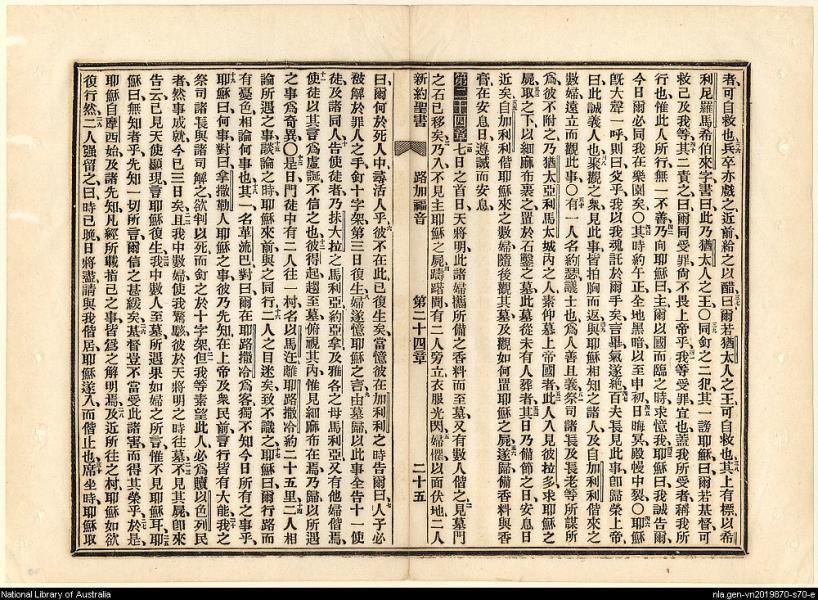 者、可自救也、兵卒亦戲之、近前給之以醋、曰爾若猶太人之王、可自救也、其上有標、以希
利尼羅馬希伯來字書曰、此乃猶太人之王○同釘之二犯、其一謗耶穌曰、爾若基督、可
救己及我等、其二責之曰、爾同受罪、尙不畏上帝乎、我等受罪宜也、蓋我所受者、稱我所
行也、惟此人所行、無一不善、乃向耶穌曰、主爾以國而臨之時、求憶我、耶穌曰、我誠告爾、
今日爾必同我在樂園矣○其時約午正、全地黑暗、以至申初、日晦冥、殿幔中裂○耶穌
旣大聲一呼、則曰、父乎、我以我魂託於爾手矣、言畢氣遂絕、百夫長見此事、卽歸榮上帝、
曰、此誠義人也、聚觀之衆、見此事、皆拍胸而返、與耶穌相知之諸人、及自加利利偕來之
數婦、遠立而觀此事○有一人名約瑟、議士也、爲人善且義、祭司諸長及長老等所謀所
爲、彼不附之、乃猶太亞利馬太城內之人、素仰慕上帝國者、此人入見彼拉多、求耶穌之
屍、取之下、以細麻布裹之、置於石鑿之墓、此墓從未有人葬者、其日乃備節之日、安息日
近矣、自加利利偕耶穌來之數婦、隨後觀其墓、及觀如何置耶穌之屍、遂歸、備香料與香
膏、在安息日、遵誡而安息、
第二十四章 七日之首日、天將明、此諸婦攜所備之香料而至墓、又有數人偕之、見墓門
之石已移矣、乃入、不見主耶穌之屍、躊躇間、有二人旁立、衣服光閃、婦懼、以面伏地、二人
新約聖書 路加福音 第二十四章 二十五
曰、爾何於死人中尋活人乎、彼不在此、已復生矣、當憶彼在加利利之時告爾曰、人子必
被解於罪人之手、釘十字架、第三日復生、婦遂憶耶穌之言、由墓歸、以此事全告十一使
徒、及諸同人、告使徒者、乃抹大拉之馬利亞、約亞拿、及雅各之母馬利亞、又有他婦偕焉、
使徒以其言爲虛誕、不信之也、彼得起、趨至墓、俯視其內、惟見細麻布在焉、乃歸、以所遇
之事爲奇異○是日門徒中有二人往一村、名以馬迕、離耶路撒冷約二十五里、二人相
論所遇之事、談論之時、耶穌來前、與之同行、二人之目迷矣、致不識之、耶穌曰、爾行路而
有憂色、相論何事也、其一名革流巴、對曰、爾在耶路撒冷爲客、獨不知今日所有之事乎、
耶穌曰、何事、對曰、拿撒勒人耶穌之事、彼乃先知、在上帝及衆民前、言行皆有大能、我之
祭司諸長、與諸司解之、欲判以死、而釘之於十字架、但我等素望此人必爲贖以色列民
者、然事成就、今已三日矣、且我中數婦使我驚駭、彼於天將明之時往墓、不見其屍、卽來
告云、已見天使顯現、言耶穌復生、我中數人至墓、所遇果如婦之所言、惟不見耶穌耳、耶
穌曰、無知者乎、先知一切所言、爾信之甚緩矣、基督豈不當受此諸害、而得其榮乎、於是
耶穌自摩西始、及諸先知、凡經所載指己之事、皆爲之解明焉、及近所往之村、耶穌如欲
復行然、二人强留之曰、時已晚、日將盡、請與我偕居、耶穌遂入、而偕止也、席坐時、耶穌取
National Library of Australia
nla.gen-vn2019870-s70-e